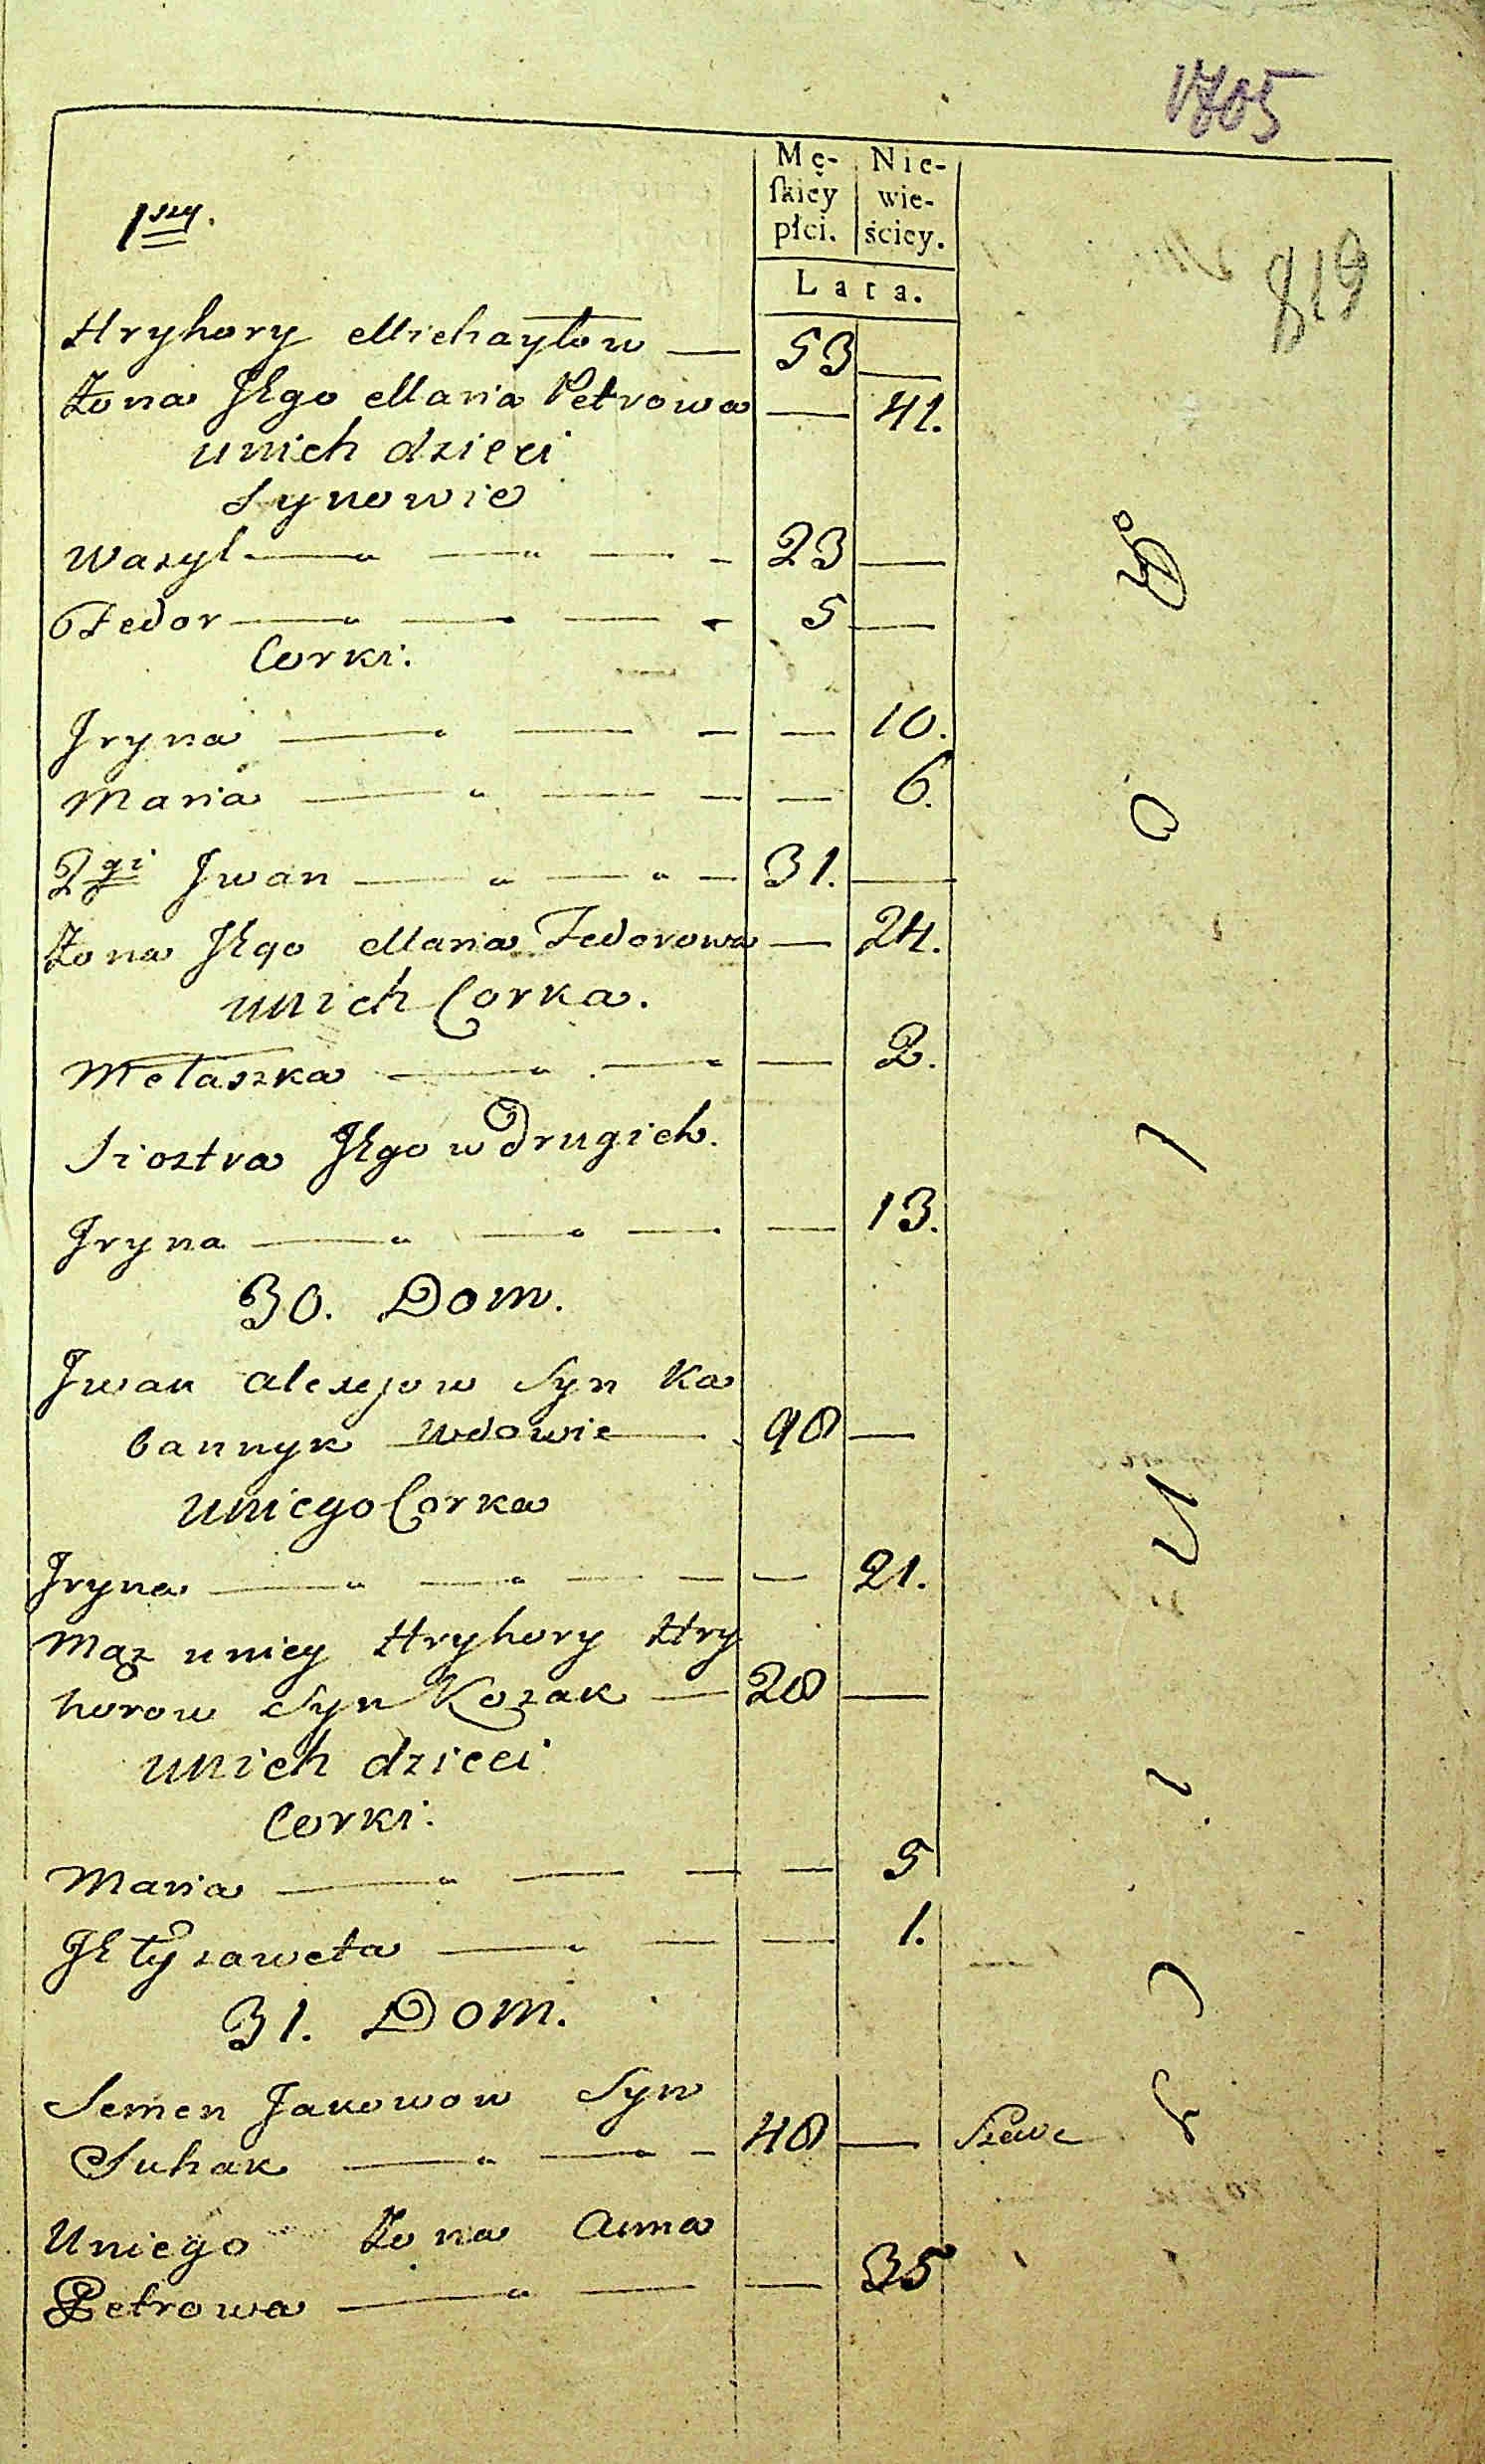 1705
Mę- Nie-
ſkiey wie-
płci. ściey.
Lata.
819
1szy.
Hryhory Michayłow — 53 —
Żona Jego Maria Petrowa — 41.
unich dzieci
Synowie
Wasyl — 23 —
Fedor — 5 —
Corki.
Jryna — 10.
Maria — 6.
2gi Jwan — 31. —
Żona Jego Maria Fedorowa — 24.
unich Corka.
Mełaszka — 2.
Siostra Jego w Drugich.
Jryna — 13.
30. Dom.
Jwan Alexejow Syn Ka
bannyk Wdowie — 98 —
uniego Corka
Jryna — 21.
Mąz uniey Hryhory Hry
horow Syn Kozak — 28 —
unich dzieci
Corki.
Maria — 5
Jełyzaweta — 1.
31. Dom.
Semen Jakowow Syn
Suhak — 48 — Szewc
Uniego Żona Anna
Petrowa — 35